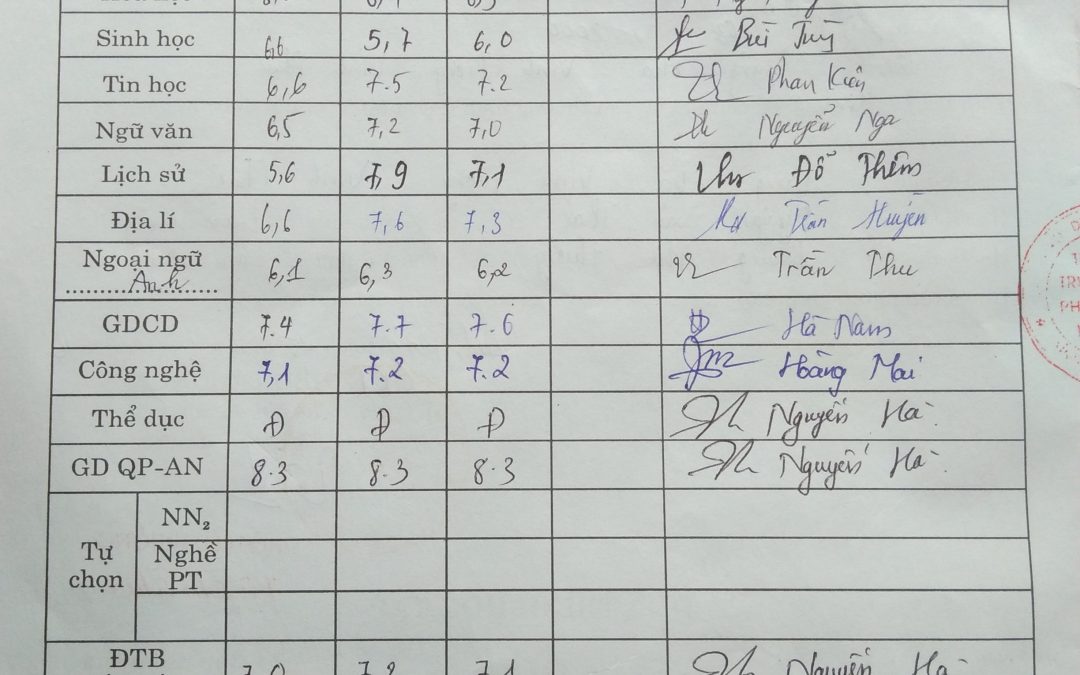 Sinh học 6,6 5,7 6,0 Bùi Tuý
Tin học 6,6 7.5 7.2 Phan Kiên
Ngữ văn 6,5 7,2 7,0 Nguyễn Nga
Lịch sử 5,6 7,9 7,1 Đỗ Thêm
Địa lí 6,6 7,6 7,3 Trần Huyền
Ngoại ngữ
Anh 6,1 6,3 6,2 Trần Thu
GDCD 7.4 7.7 7.6 Hà Nam
Công nghệ 7,1 7.2 7.2 Hoàng Mai
Thể dục Đ Đ Đ Nguyễn Hà
GD QP-AN 8.3 8.3 8.3 Nguyễn Hà
Tự chọn
NN₂
Nghề
PT
ĐTB 7.1 Nguyễn Hà